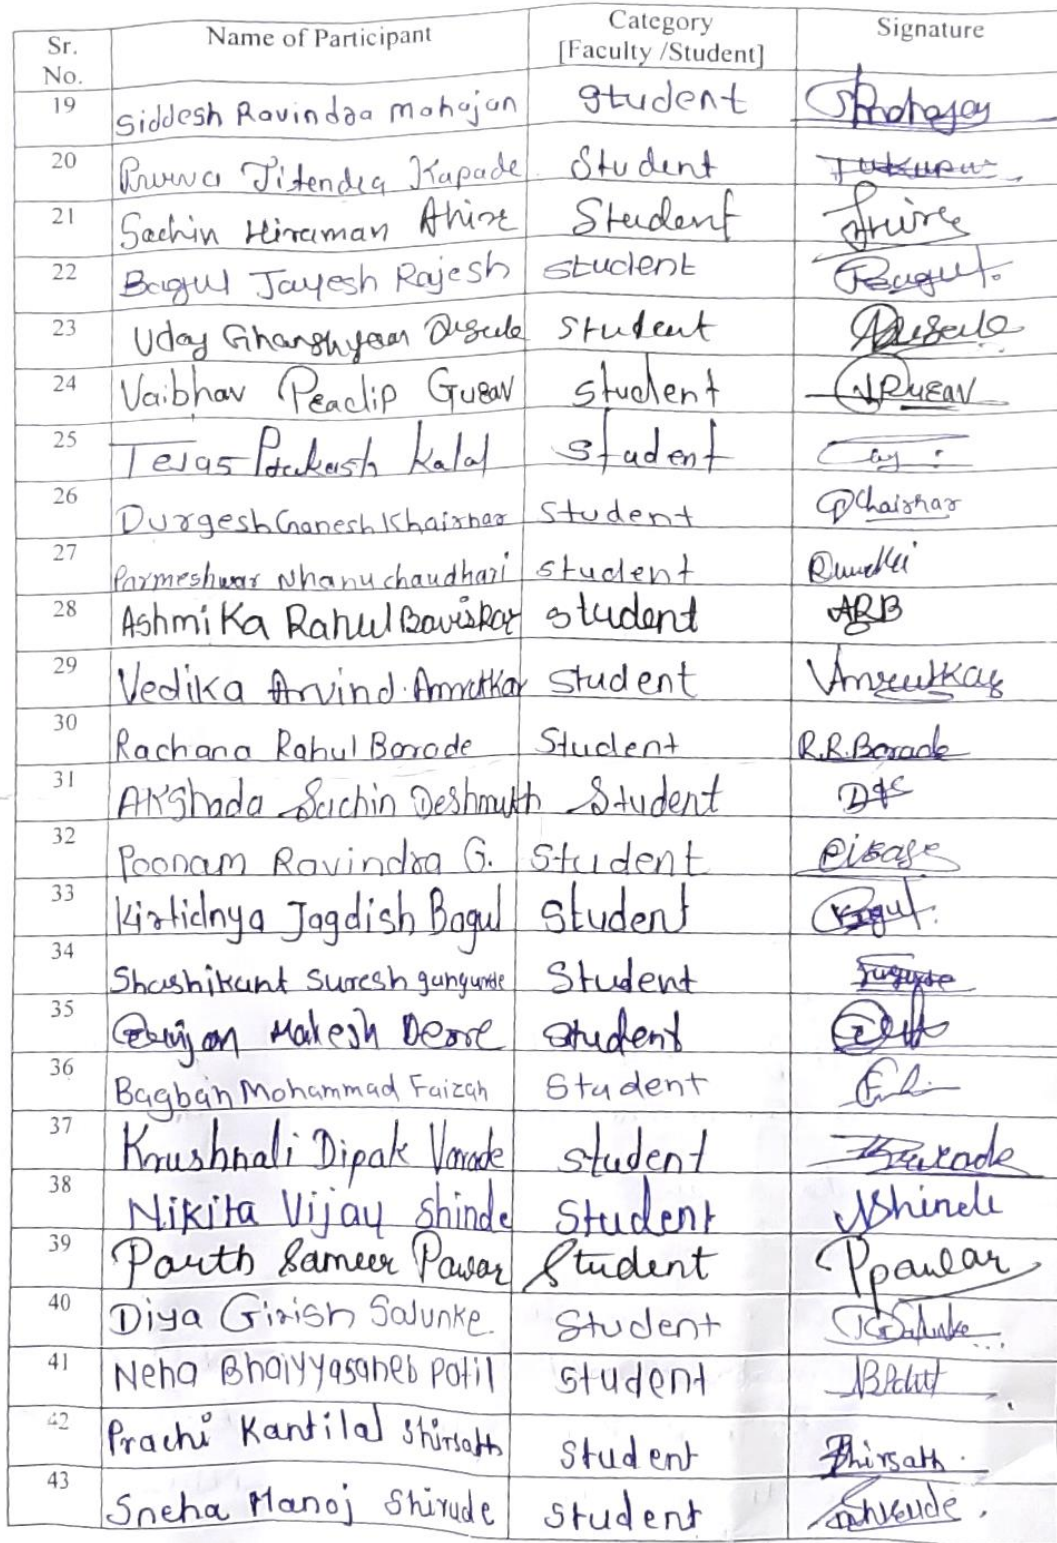 Sr. No. Name of Participant Category [Faculty /Student] Signature
19 Siddesh Ravindra Mahajan Student
20 Purva Jitendra Kapade Student
21 Sachin Hiraman Ahire Student Ahire
22 Bagul Jayesh Rajesh student Bagul.
23 Uday Ghanshyam Student
24 Vaibhav Pradip Gurav student
25 Tejas Prakash Kalal Student
26 Durgesh Ganesh Khairnar Student Khairnar
27 Parmeshwar Nhanu chaudhari student
28 Ashmika Rahul Baviskar student ARB
29 Vedika Arvind. Amrutkar student VAmrutkar
30 Rachana Rahul Borade Student R.R.Borade
31 AKshada Sachin Deshmukh Student
32 Poonam Ravindra G. Student
33 Kirtidnya Jagdish Bagul Student
34 Shashikant Suresh gangurde Student
35 Mahesh Deore Student
36 Bagban Mohammad Faizan Student
37 Krushnali Dipak Varade student
38 Nikita Vijay Shinde Student NShinde
39 Parth Sameer Pawar Student Ppawar
40 Diya Girish Salunke. Student
41 Neha Bhaiyyasaheb Patil student
42 Prachi Kantilal Shirsath Student Shirsath.
43 Sneha Manoj Shirude Student